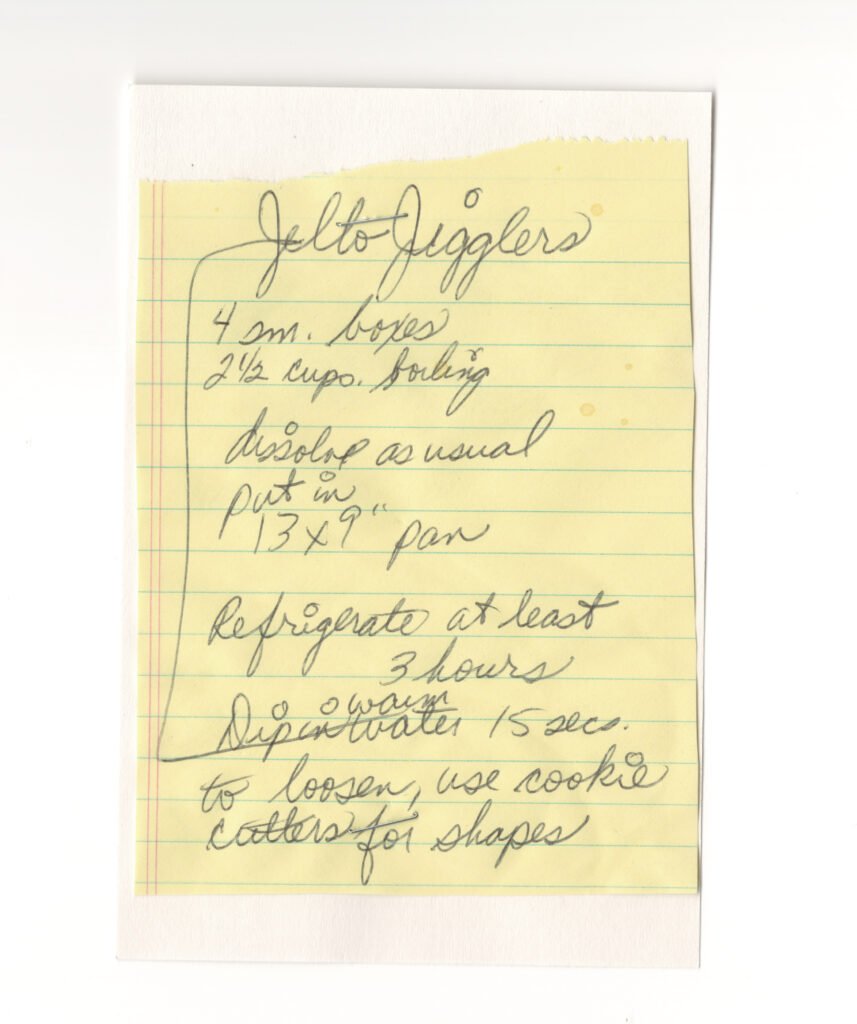 Jello Jigglers
4 sm. boxes
2 1/2 cups. boiling
dissolve as usual
put in
13 x 9" pan
Refrigerate at least
3 hours
Dip in warm water 15 secs.
to loosen, use cookie
cutters for shapes